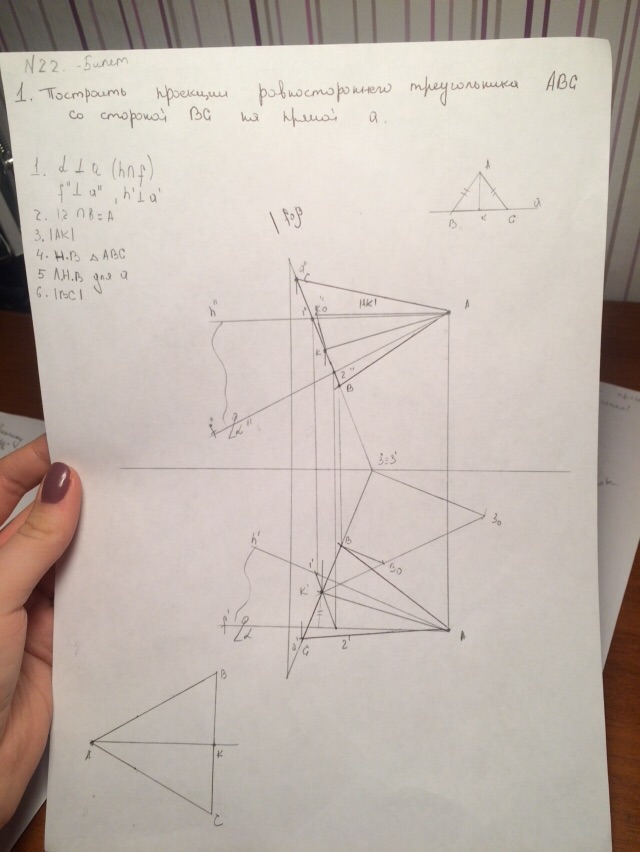 N22. -Билет
1. Построить проекции равностороннего треугольника ABC
со стороной BC на прямой a.
1. α ⊥ a (h∩f)
f" ⊥ a", h' ⊥ a'
3. |AK|
4. Н.В △ABC
5 Н.В для a
6. |BC|
A
B
K
C
a
a"
C
h"
1"
|AK|
A
K
2"
B
α"
3=3'
3o
h'
B
Bo
1'
K'
α
a'
C
2'
A
B
A
K
C